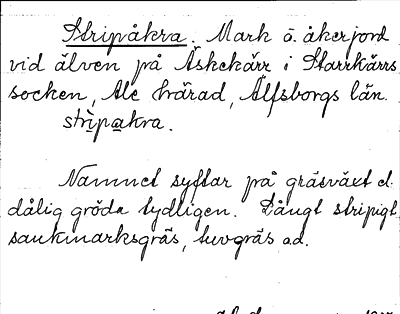 Stripåkra. Mark o. åkerjord
vid älven på Äskekärr i Starrkärrs
socken, Ale härad, Älfsborgs län.
strìpakra.
Namnet syftar på gräsväxt el.
dålig gröda tydligen. Långt stripigt
sankmarksgräs, tuvgräs od.